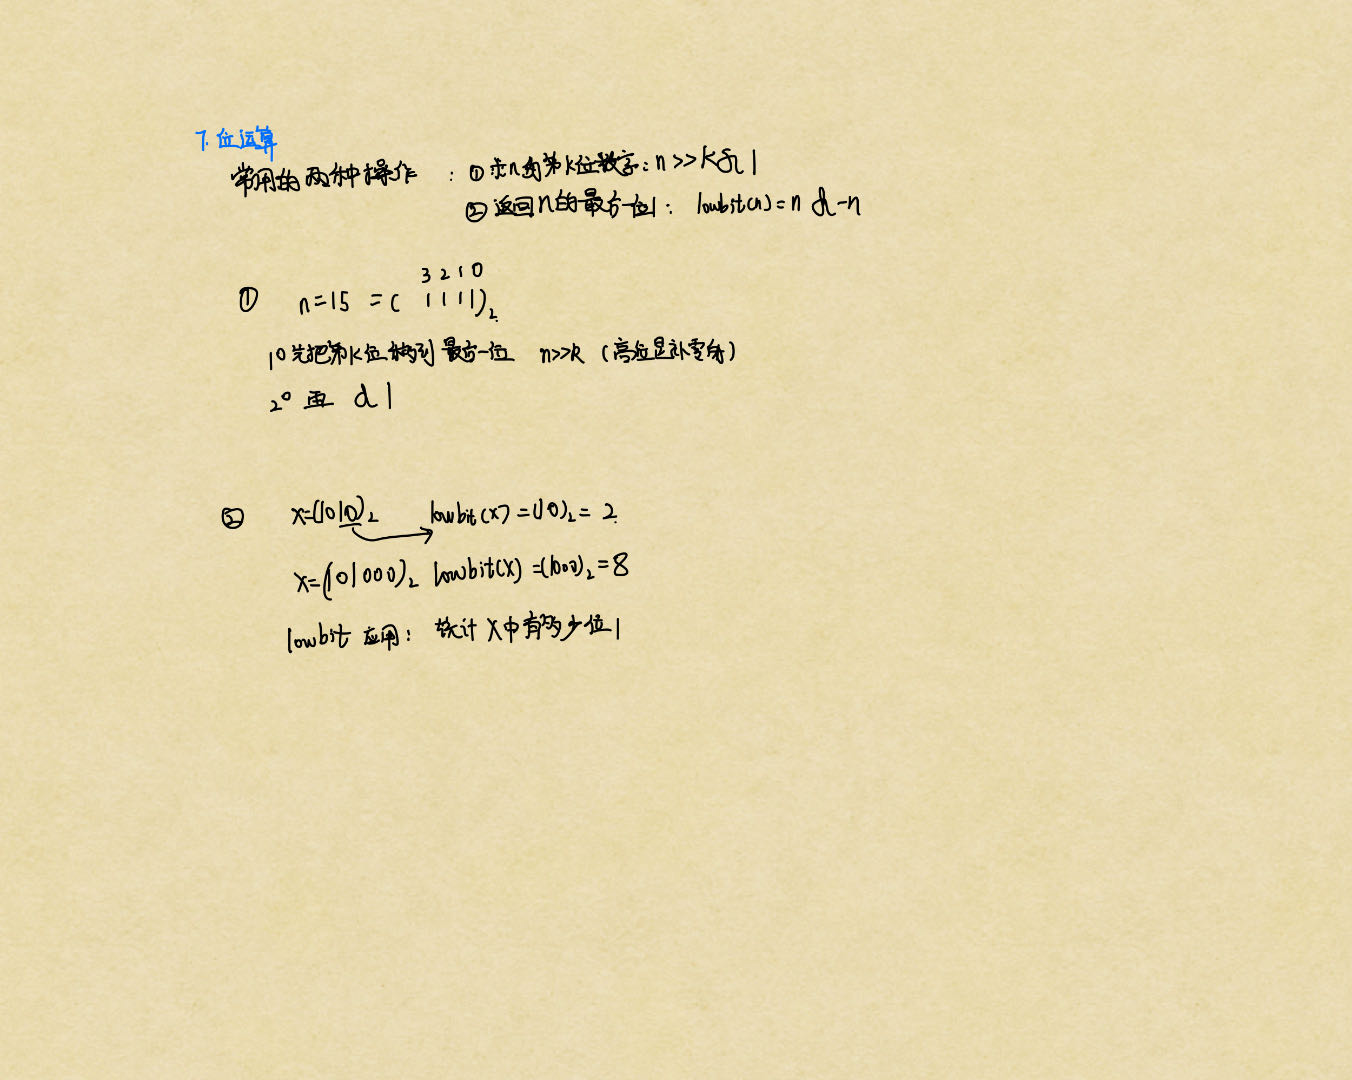 7. 位运算
常用的两种操作 : ① 求n的第k位数字: n >> k & 1
② 返回n的最后一位1: lowbit(n) = n & -n
3 2 1 0
① n = 15 = ( 1 1 1 1 )₂
1° 先把第k位移到最后一位 n>>k (高位是补零的)
2° 再 & 1
② x=(1010)₂ lowbit(x) = (10)₂ = 2
x=(101000)₂ lowbit(x) = (1000)₂ = 8
lowbit 应用: 统计 x中有多少位1